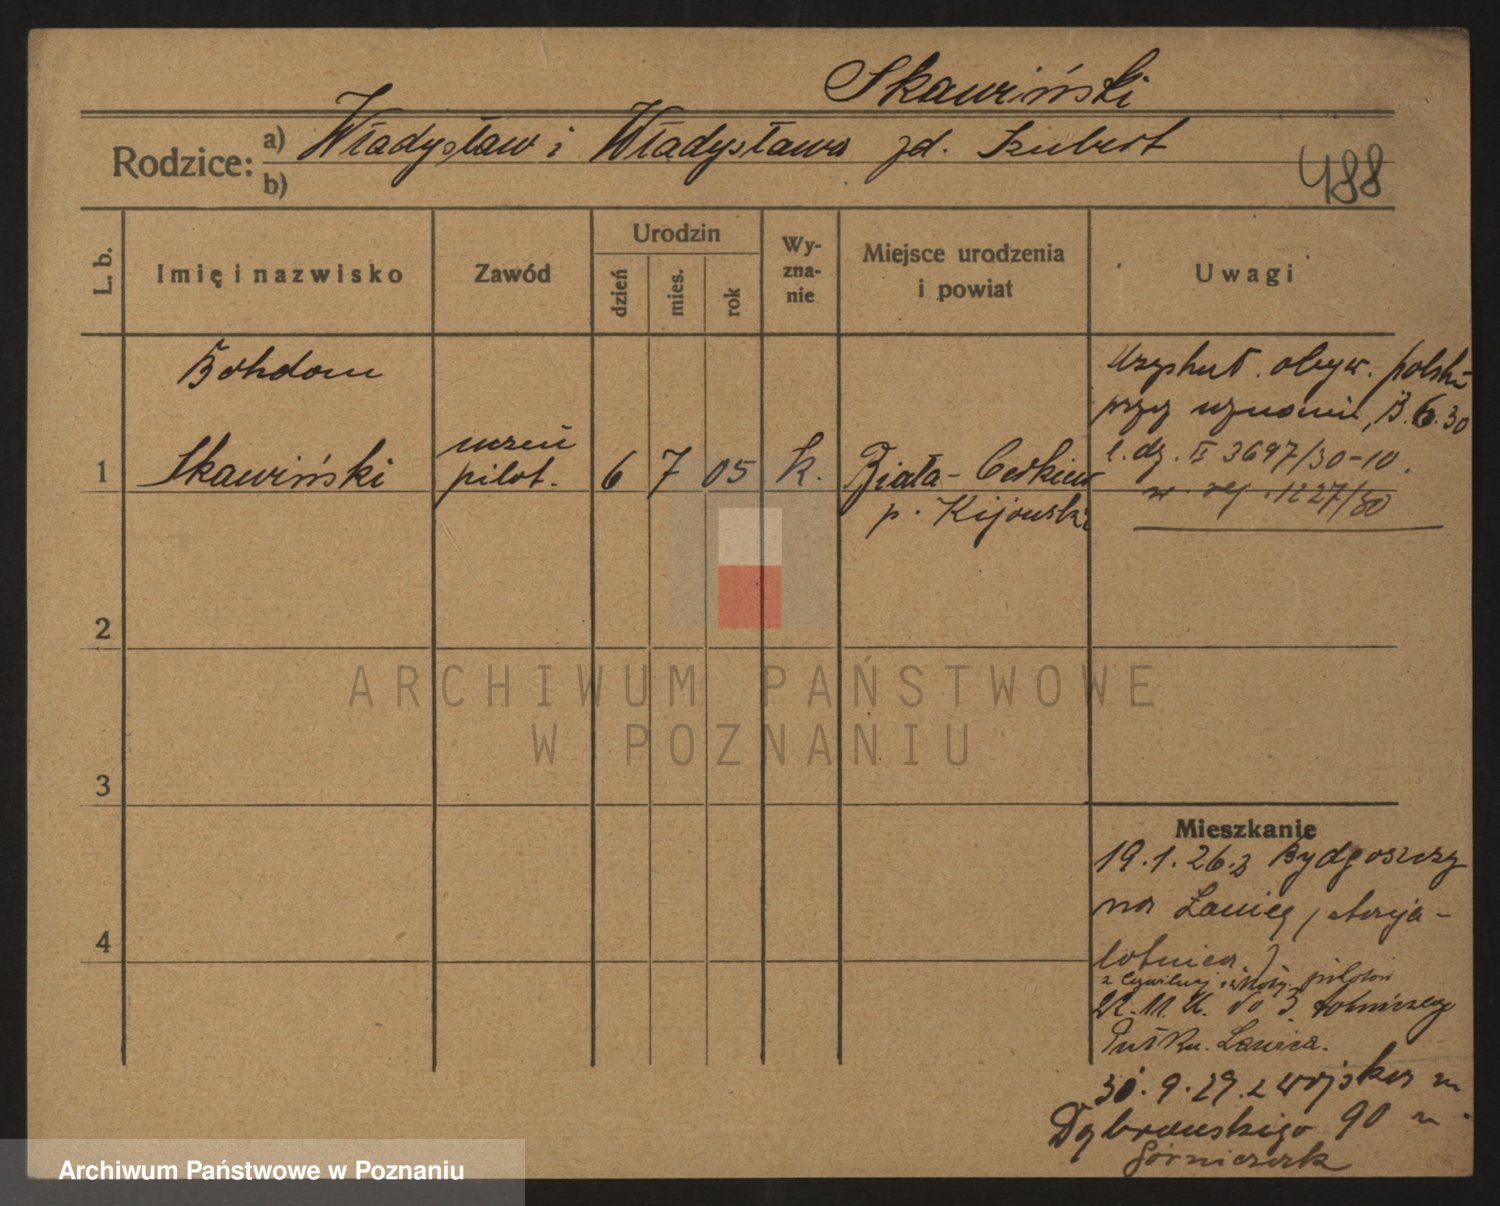 Skawiński
Rodzice: a) Władysław i Władysława zd. Szubert
b)
488
L. b.
Imię i nazwisko
Zawód
Urodzin
dzień
mies.
rok
Wy-
zna-
nie
Miejsce urodzenia
i powiat
Uwagi
1
Bohdan
Skawiński
uczeń
pilot.
6
7
05
k.
Biała-Cerkiew
p. Kijowski
obyw. polski
przy 6.30
l. dz. II 3697/30-10.
w rej.
2
3
4
Mieszkanie
19.1.26 z Bydgoszczy
na Ławicę, stacja
lotnicza.)
z cywilnej szkoły pilotów
22.11. do 3 lotniczego
Pułku. Ławica.
30.9.29 z wojska
Dąbrowskiego 90
ARCHIWUM PAŃSTWOWE
W POZNANIU
Archiwum Państwowe w Poznaniu